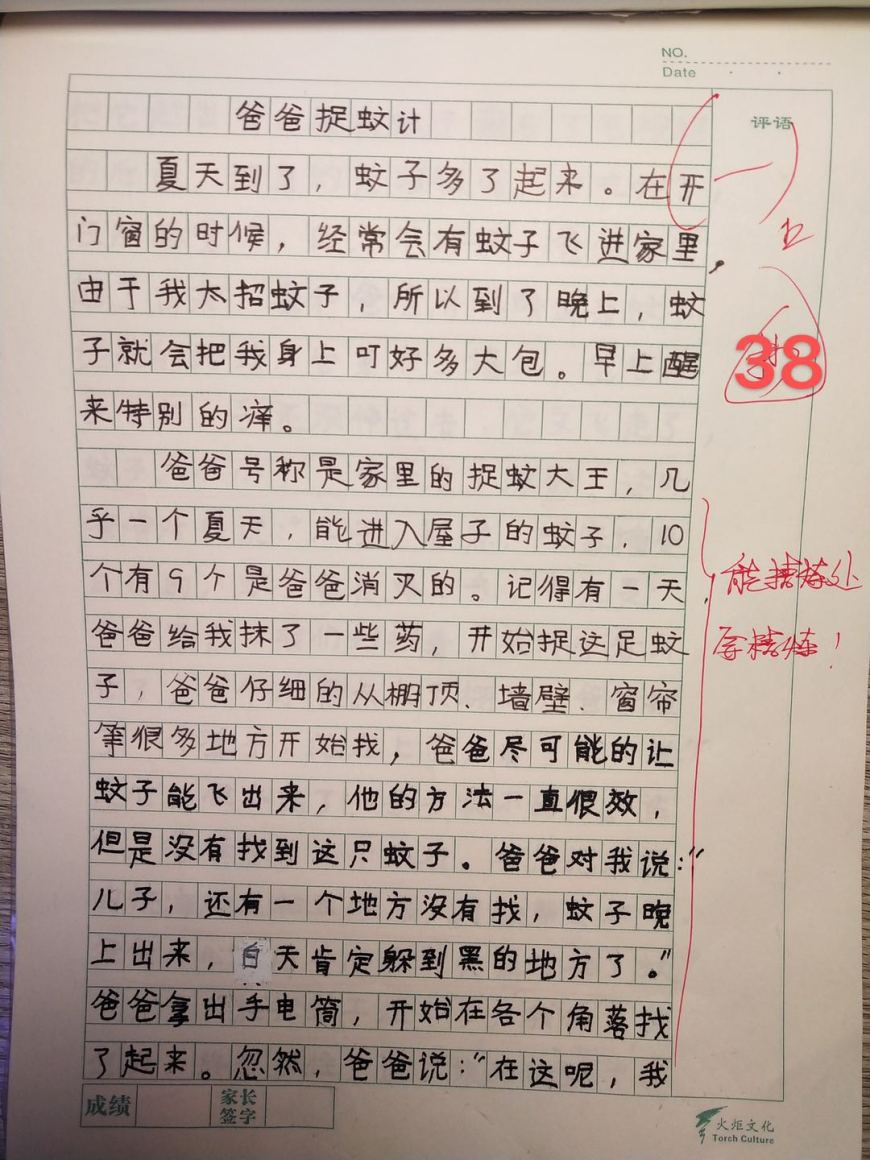 NO.
Date
评语
爸爸捉蚊计
夏天到了，蚊子多了起来。在开
门窗的时候，经常会有蚊子飞进家里，
由于我太招蚊子，所以到了晚上，蚊
子就会把我身上叮好多大包。早上醒
来特别的痒。
38
爸爸号称是家里的捉蚊大王，几
乎一个夏天，能进入屋子的蚊子，10
个有9个是爸爸消灭的。记得有一天，
爸爸给我抹了一些药，开始捉这足蚊
子，爸爸仔细的从棚顶、墙壁、窗帘
等很多地方开始找，爸爸尽可能的让
蚊子能飞出来，他的方法一直很效，
但是没有找到这只蚊子。爸爸对我说："
儿子，还有一个地方没有找，蚊子晚
上出来，白天肯定躲到黑的地方了。"
爸爸拿出手电筒，开始在各个角落找
了起来。忽然，爸爸说："在这呢，我
能精炼处
要精炼！
成绩
家长
签字
火炬文化
Torch Culture